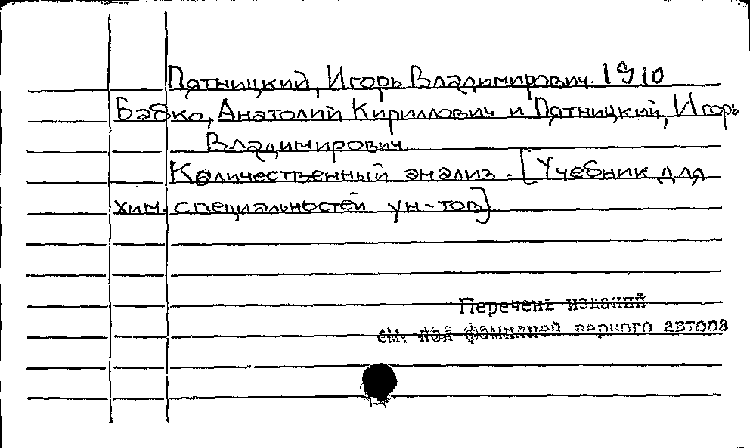 Пятницкий, Игорь Владимирович. 1910
Бабко, Анатолий Кириллович и Пятницкий, Игорь
Владимирович
Количественный анализ. [Учебник для
хим. специальностей ун-тов]
Перечень изданий
см. под фамилией первого автора